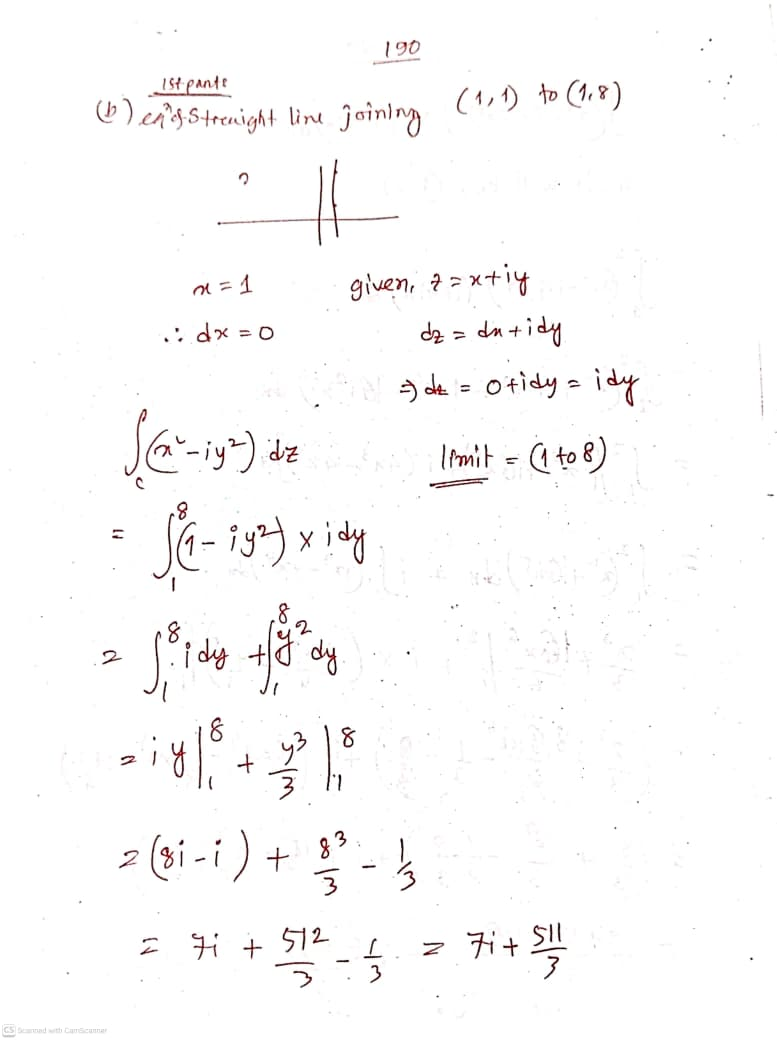 190
1st part
(b) eqn of Straight line joining (1,1) to (1,8)
x = 1 given, z = x+iy
∴ dx = 0 dz = dx + idy
⇒ dz = 0+idy = idy
∫c (x² - iy²) dz limit = (1 to 8)
= ∫₁⁸ (1 - iy²) x idy
= ∫₁⁸ idy + ∫₁⁸ y² dy
= iy|₁⁸ + y³/3 |₁⁸
= (8i - i) + 8³/3 - 1/3
= 7i + 512/3 - 1/3 = 7i + 511/3
CS Scanned with CamScanner